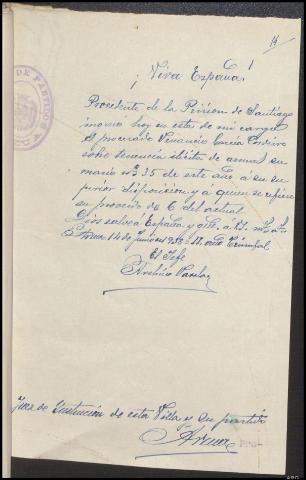 14
¡Viva España!
Procedente de la Prisión de Santiago
ingresa hoy en esta de mi cargo
el procesado Venancio García Cordero
sobre tenencia ilícita de armas su-
mario nº 35 de este año a su su-
perior disposición y a quien se refiere
su proveido de 6 del actual
Dios salve a España y gde. a V.S. ms. as.
14 de Junio de 1938 - II. año Triunfal
El Jefe
Juez de Instrucción de esta Villa y su partido
DE PARTIDO